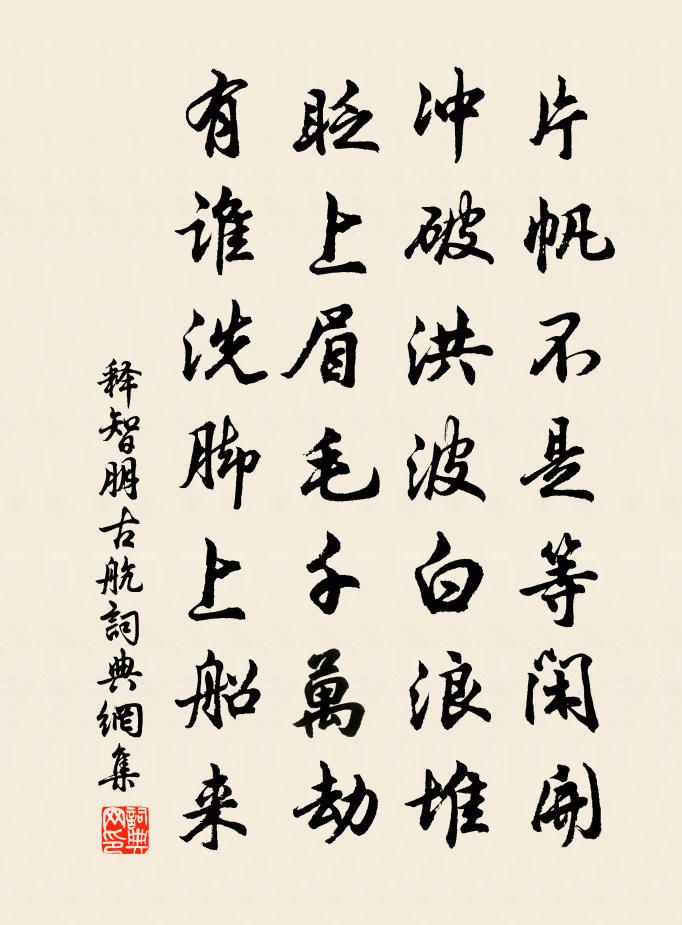 片帆不是等閑開
冲破洪波白浪堆
眨上眉毛千萬劫
有谁洗脚上船来
释智朋古航詞典網集
詞典网印